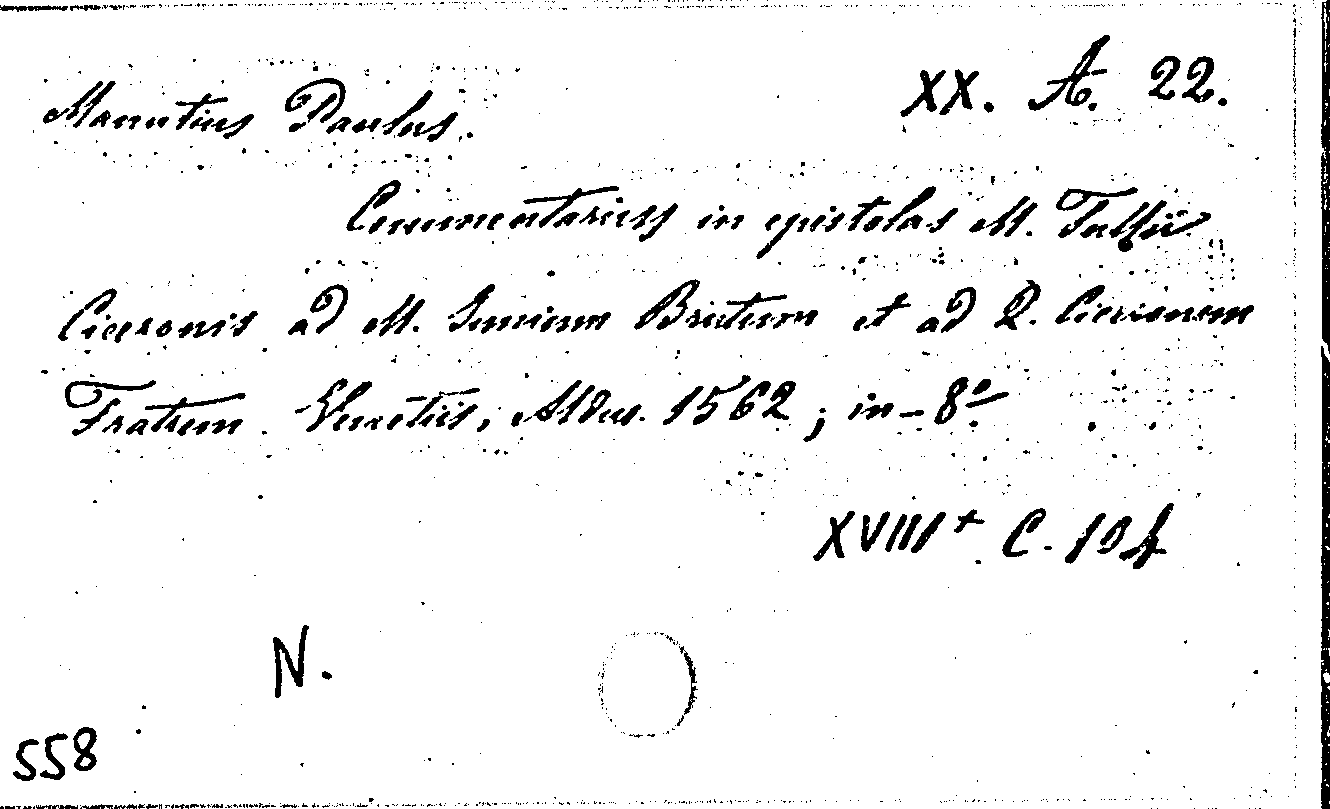 Manutius Paulus. XX. A. 22.
Commentarius in epistolas M. Tullii
Ciceronis ad M. Junium Brutum et ad Q. Ciceronem
Fratrem. Venetiis, Aldus. 1562; in-8º.
XVIII+ C. 104
N.
558